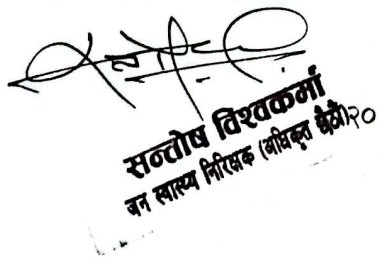 सन्तोष विश्वकर्मा
जन स्वास्थ्य निरिक्षक (अधिकृत छैठौं)२०